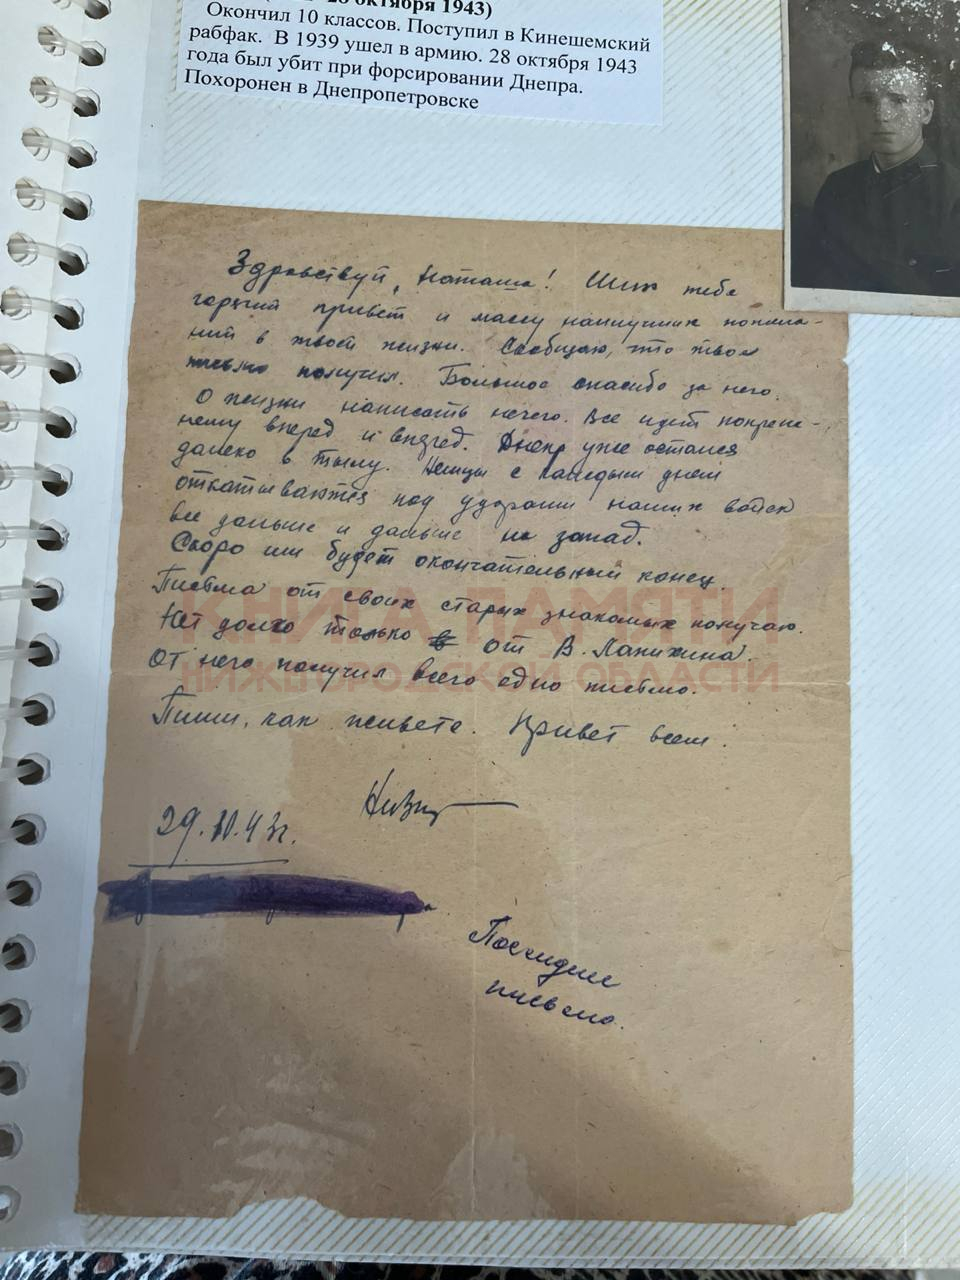 28 октября 1943)
Окончил 10 классов. Поступил в Кинешемский
рабфак. В 1939 ушел в армию. 28 октября 1943
года был убит при форсировании Днепра.
Похоронен в Днепропетровске
Здравствуй, Наташа! Шлю тебе
горячий привет и массу наилучших пожела-
ний в твоей жизни. Сообщаю, что твое
письмо получил. Большое спасибо за него.
О жизни написать нечего. Все идет попреж-
нему вперед и вперед. Днепр уже остался
далеко в тылу. Немцы с каждым днем
откатываются под ударами наших войск
все дальше и дальше на запад.
Скоро им будет окончательный конец.
Письма от своих старых знакомых получаю.
Нет долго только от В. Лапихина.
От него получил всего одно письмо.
Пиши, как живете. Привет всем.
29.10.43г.
Последнее
письмо.
КНИГА ПАМЯТИ
НИЖЕГОРОДСКОЙ ОБЛАСТИ